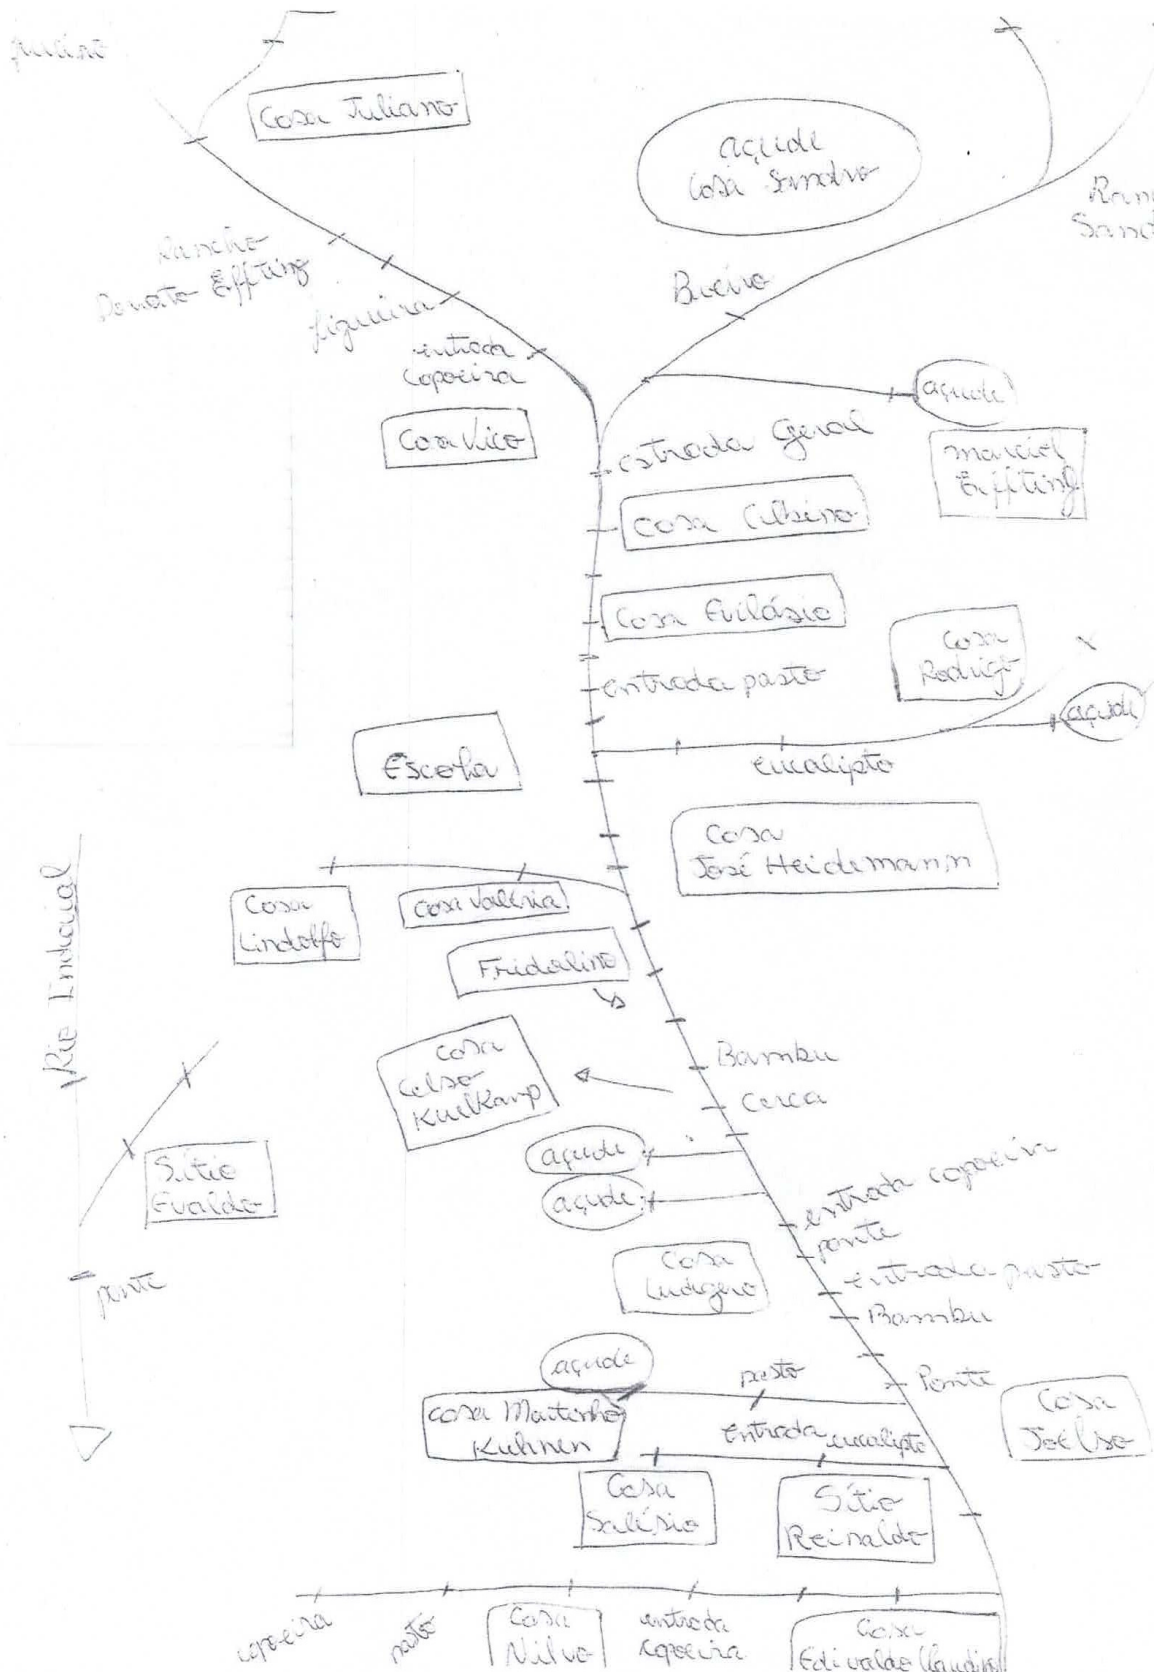 Casa Juliano
açude
Casa Sandro
Rancho
Donato Effting
figueira
entrada
capoeira
Bueiro
açude
Casa Vico
estrada Geral
Marciel
Effting
Casa Evilásio
Casa
Rodrigo
entrada pasto
açude
Escola
eucalipto
Casa
José Heidemann
Rio Indaial
Casa
Lindolfo
Casa Valéria
Fridolino
Casa
Celso
Kuelkamp
Bambu
Cerca
açude
açude
Sítio
Evaldo
entrada capoeira
ponte
Casa
Ludgero
entrada pasto
Bambu
ponte
açude
pasto
Ponte
Casa Martinho
Kuhnen
entrada eucalipto
Casa
Joelso
Casa
Salésio
Sítio
Reinaldo
capoeira
pasto
Casa
Nilvo
entrada
capoeira
Casa
Edivaldo